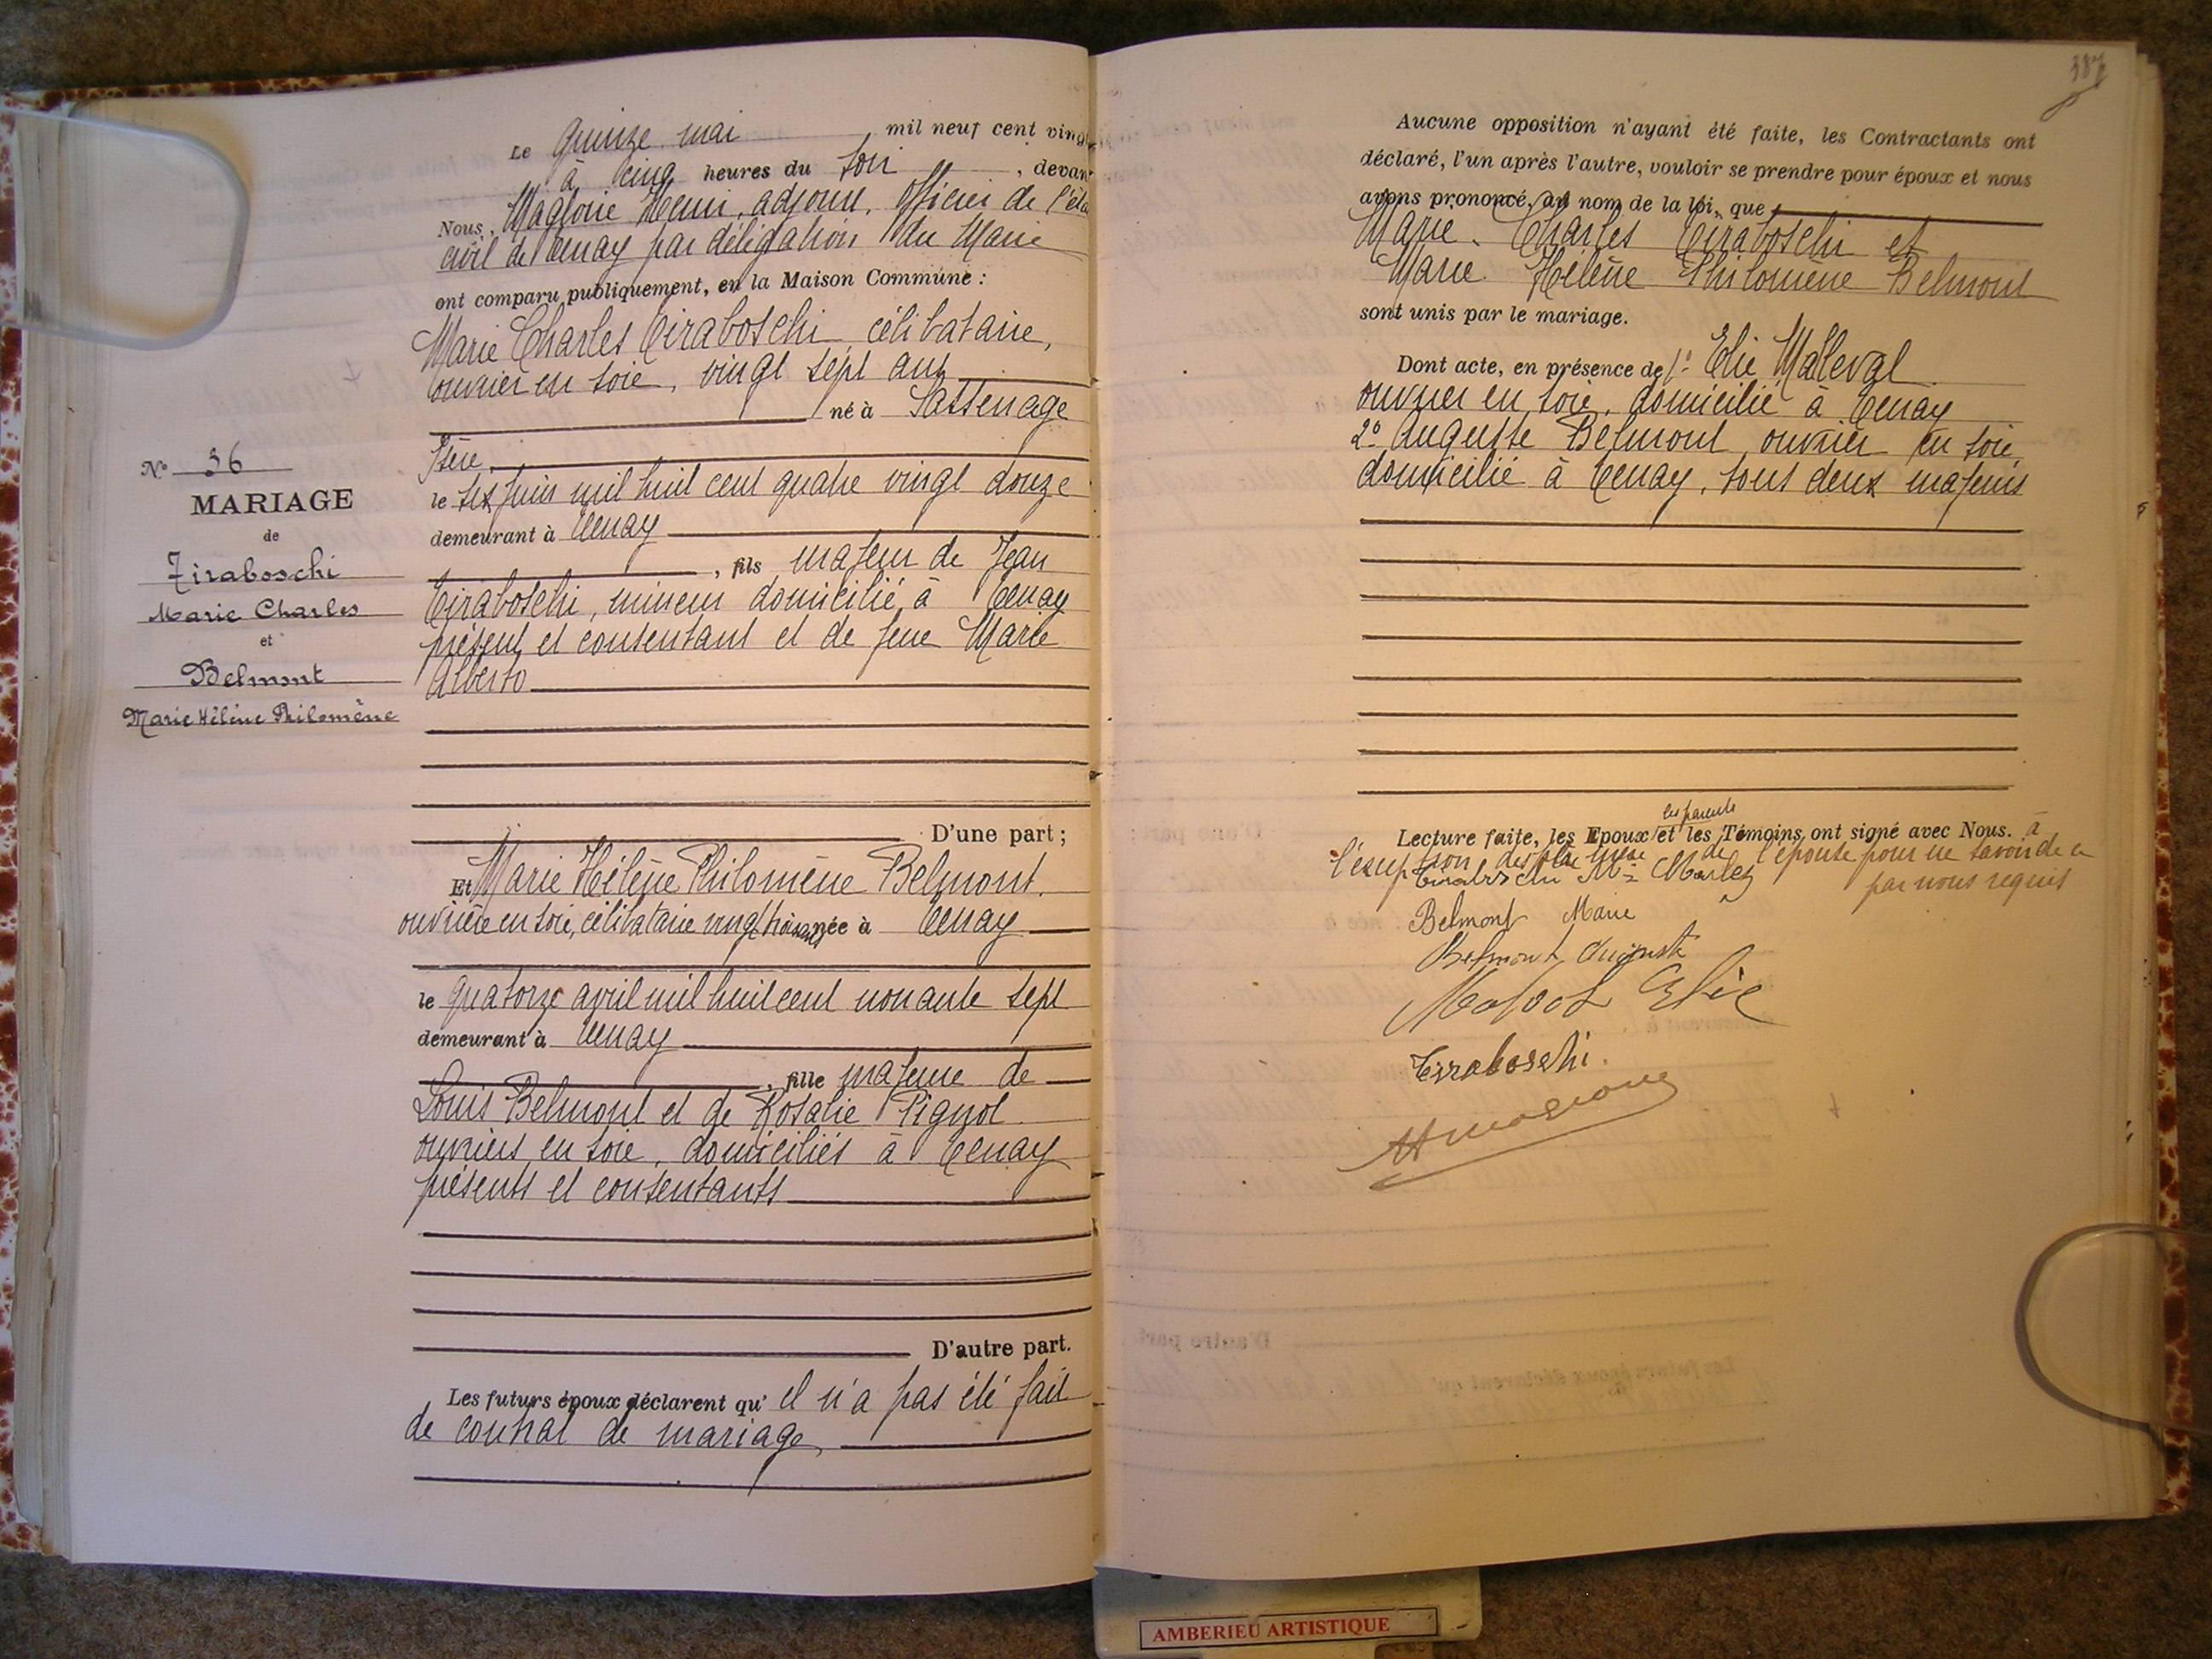 Le quinze mai mil neuf cent vingt
à cinq heures du soir, devant
Nous, Magloire Henri, adjoint, Officier de l'éta
civil de Tenay par délégation du Maire
ont comparu publiquement, en la Maison Commune :
Marie Charles Tiraboschi, célibataire,
ouvrier en soie, vingt sept ans
né à Sassenage
Isère
le six juin mil huit cent quatre vingt douze
demeurant à Tenay
, fils majeur de Jean
Tiraboschi, mineur domicilié à Tenay
présent et consentant et de feue Marie
Alberto
D'une part ;
N° 36
MARIAGE
de
Tiraboschi
Marie Charles
et
Belmont
Marie Hélène Philomène
Et Marie Hélène Philomène Belmont
ouvrière en soie, célibataire vingt trois ans née à Tenay
le quatorze avril mil huit cent nonante sept
demeurant à Tenay
, fille majeure de
Louis Belmont et de Rosalie Pignol
ouvriers en soie, domiciliés à Tenay
présents et consentants
D'autre part.
Les futurs époux déclarent qu' il n'a pas été fait
de contrat de mariage,
387
Aucune opposition n'ayant été faite, les Contractants ont
déclaré, l'un après l'autre, vouloir se prendre pour époux et nous
avons prononcé, au nom de la loi, que
Marie Charles Tiraboschi et
Marie Hélène Philomène Belmont
sont unis par le mariage.
Dont acte, en présence de 1° Elie Malleval
ouvrier en soie, domicilié à Tenay
2° Auguste Belmont, ouvrier en soie
domicilié à Tenay, tous deux majeurs
les parents
Lecture faite, les Epoux et les Témoins, ont signé avec Nous. à
l'exception des père mère de l'épouse pour ne savoir de ce
par nous requis
Tiraboschi Charles
Belmont Marie
Belmont Auguste
Elie
Tiraboschi.
AMBERIEU ARTISTIQUE